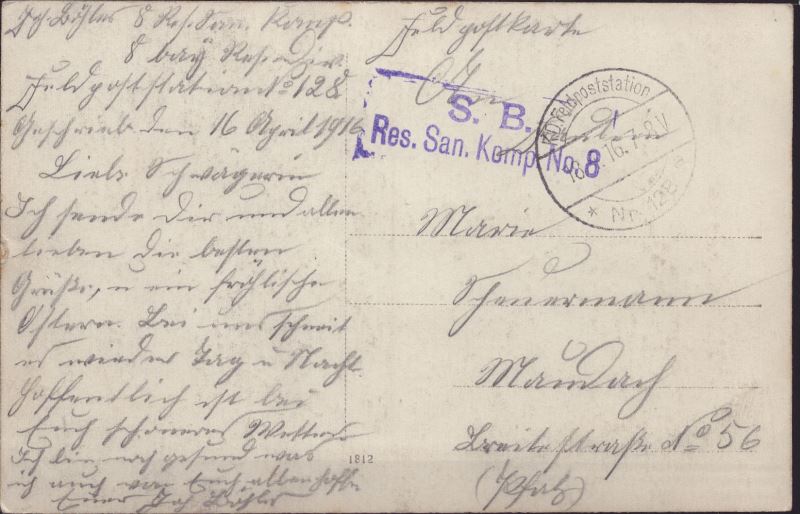 Joh. Böhler 8 Res. San. Komp.
8 bay Res. Div.
Feldpoststation No 128
Geschrieb. den 16 April 1916
Liebe Schwägerin
Ich sende Dir und allen
lieben die besten
Grüße, u ein fröhliche
Ostern. Bei uns schneit
es wieder Tag u Nacht
hoffentlich ist bei
Euch schöneres Wetter
Ich bin noch gesund was
ich auch von Euch allen hoffe
Euer Joh Böhler
Feldpostkarte
An
S. B.
Res. San. Komp. No. 8
Feldpoststation
16. 7-8V
* Nr. 128
Fräulein
Marie
Scheuermann
Maudach
Breitestraße No 56
(Pfalz)
1812